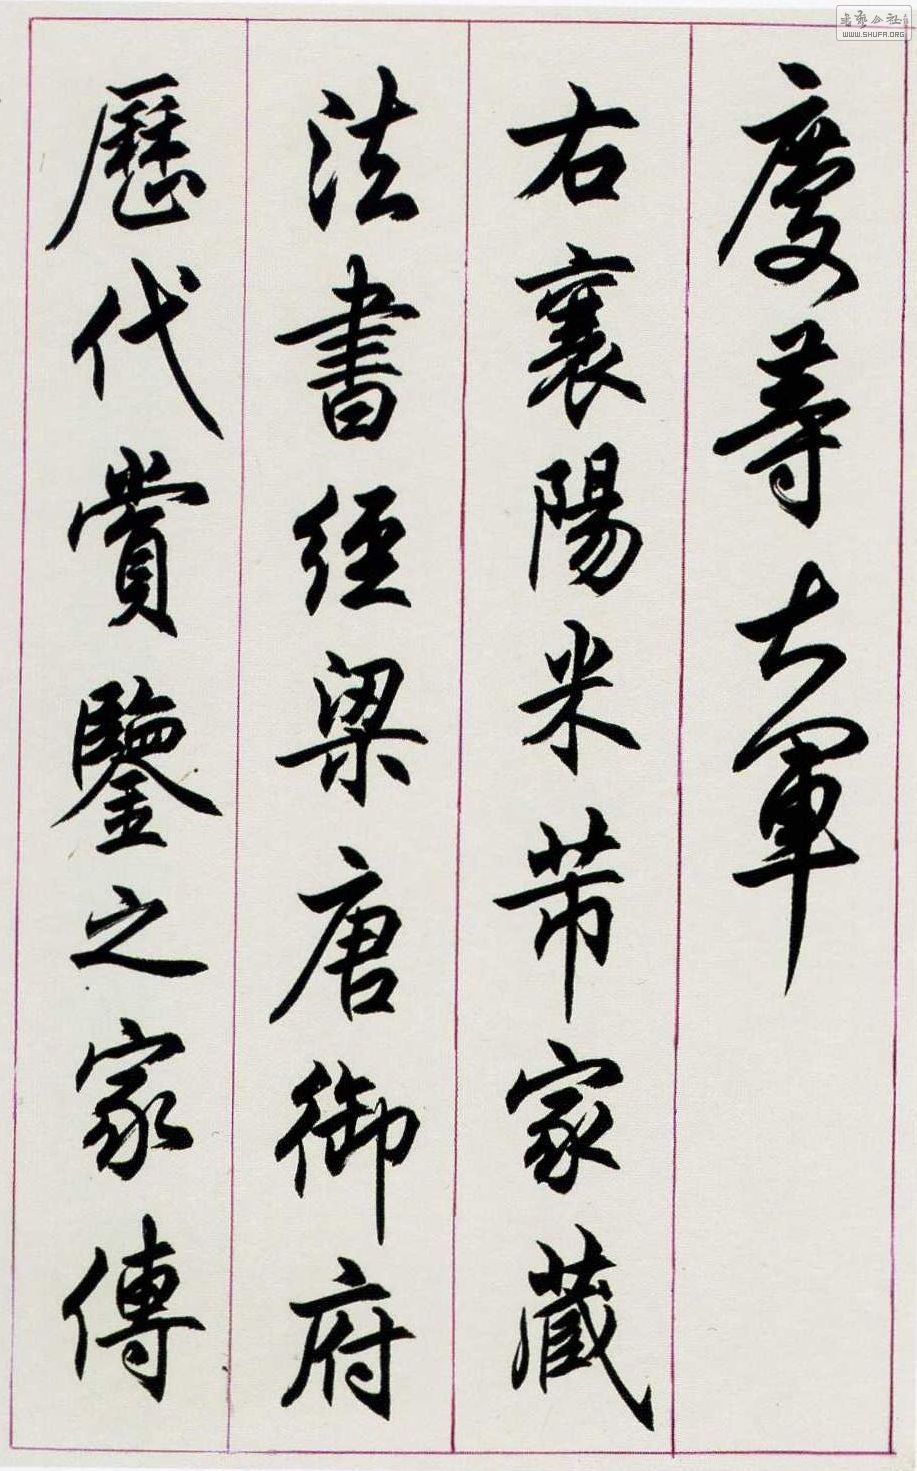 慶等大軍
右襄陽米芾家藏
法書經梁唐御府
歷代賞鑒之家傳
WWW.SHUFA.ORG